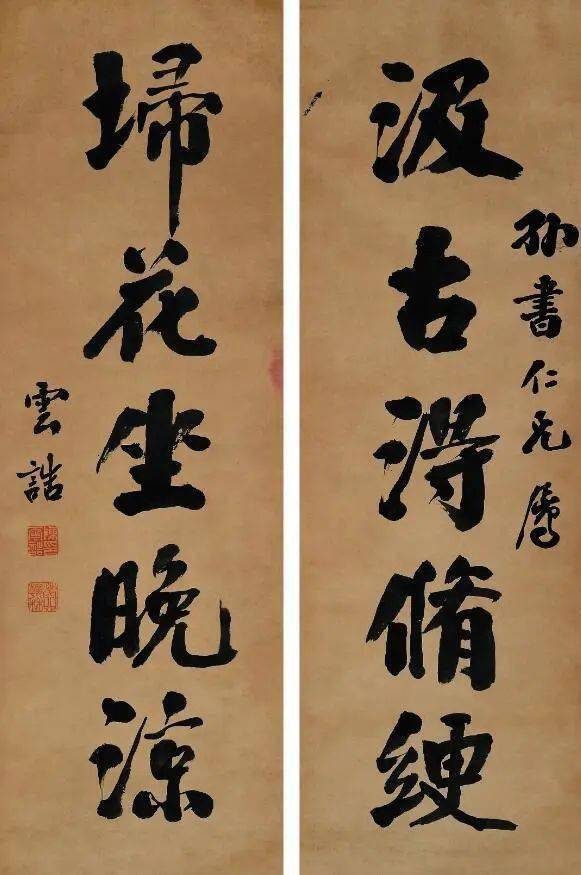 孙書仁兄属
汲古得脩綆
埽花坐晚涼
雲誥